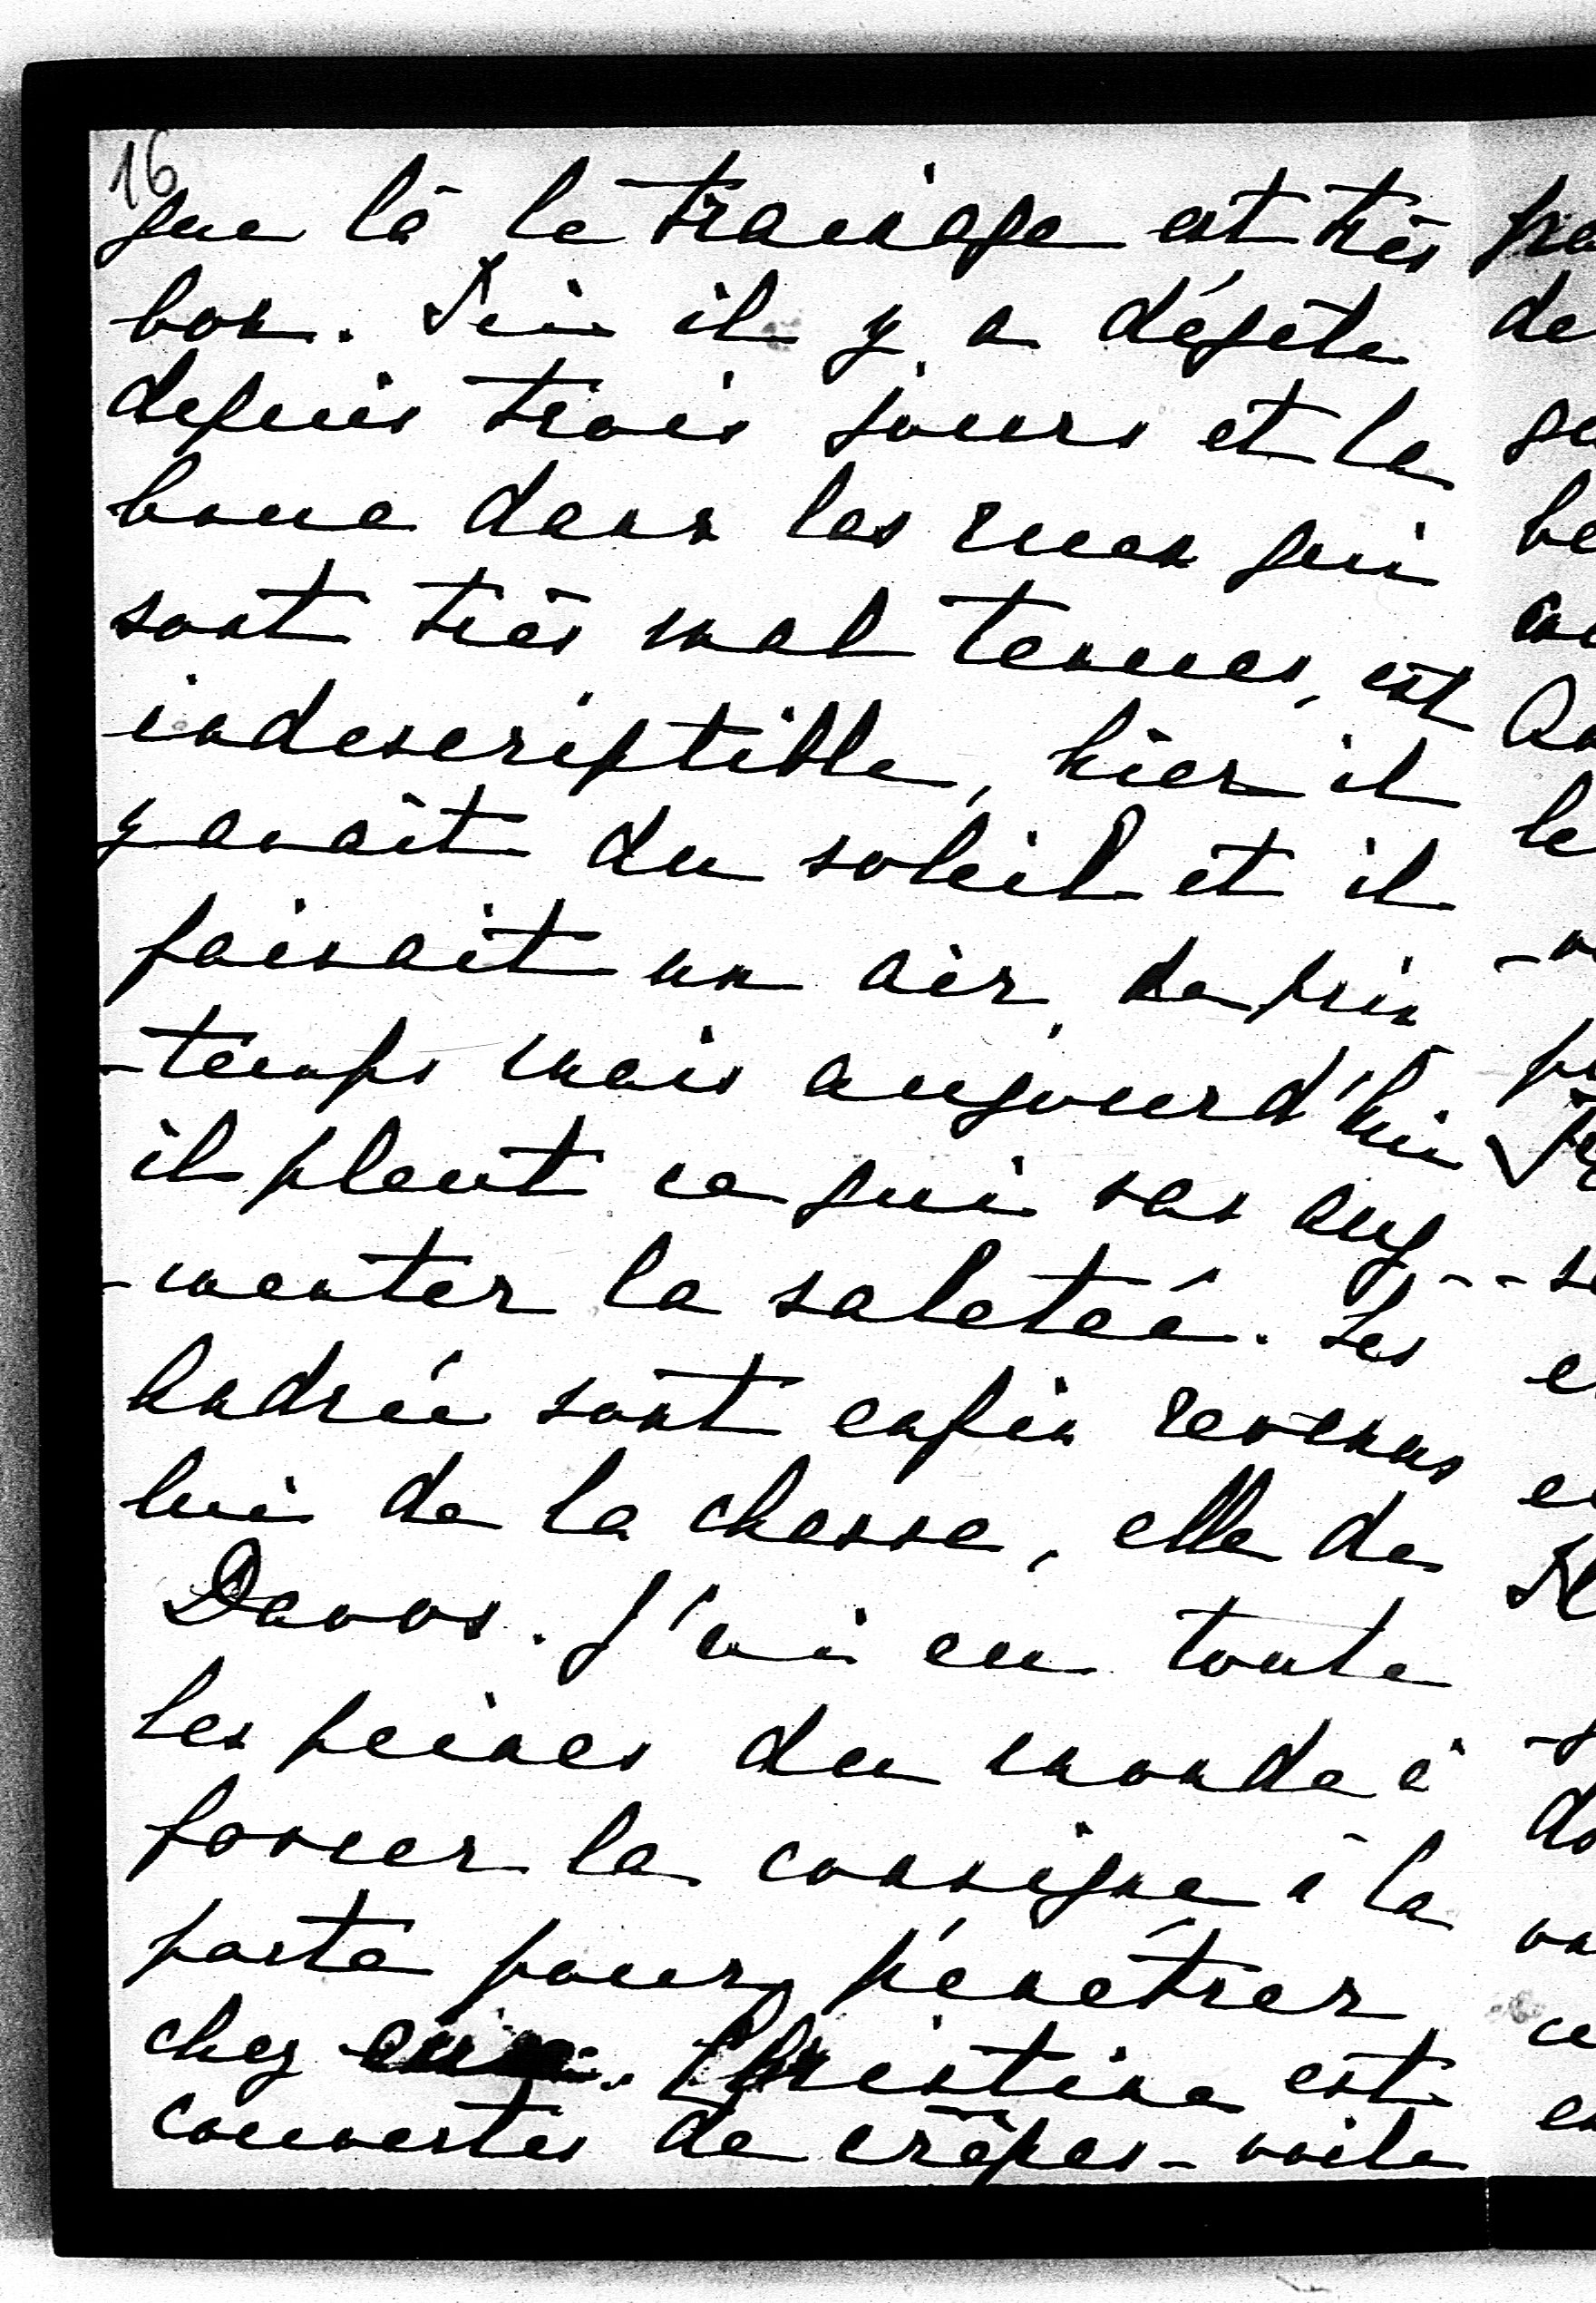 16
que là le trainage est très
bon. Ici il y a dégèle
depuis trois jours et la
boue dans les rues qui
sont très mal tenues, est
indescriptible, hier il
y avait du soleil et il
faisait un air de prin
-temps mais aujourd'hui
il pleut ce qui vas aug-
-menter la saleteé. Les
Andrée sont enfin revenus
lui de la chasse, elle de
Davos. J'ai eu toute
les peines du monde à
forcer la consigne à la
porte pour pénétrer
chez eux. Christine est
couvertes de crêpes - voile